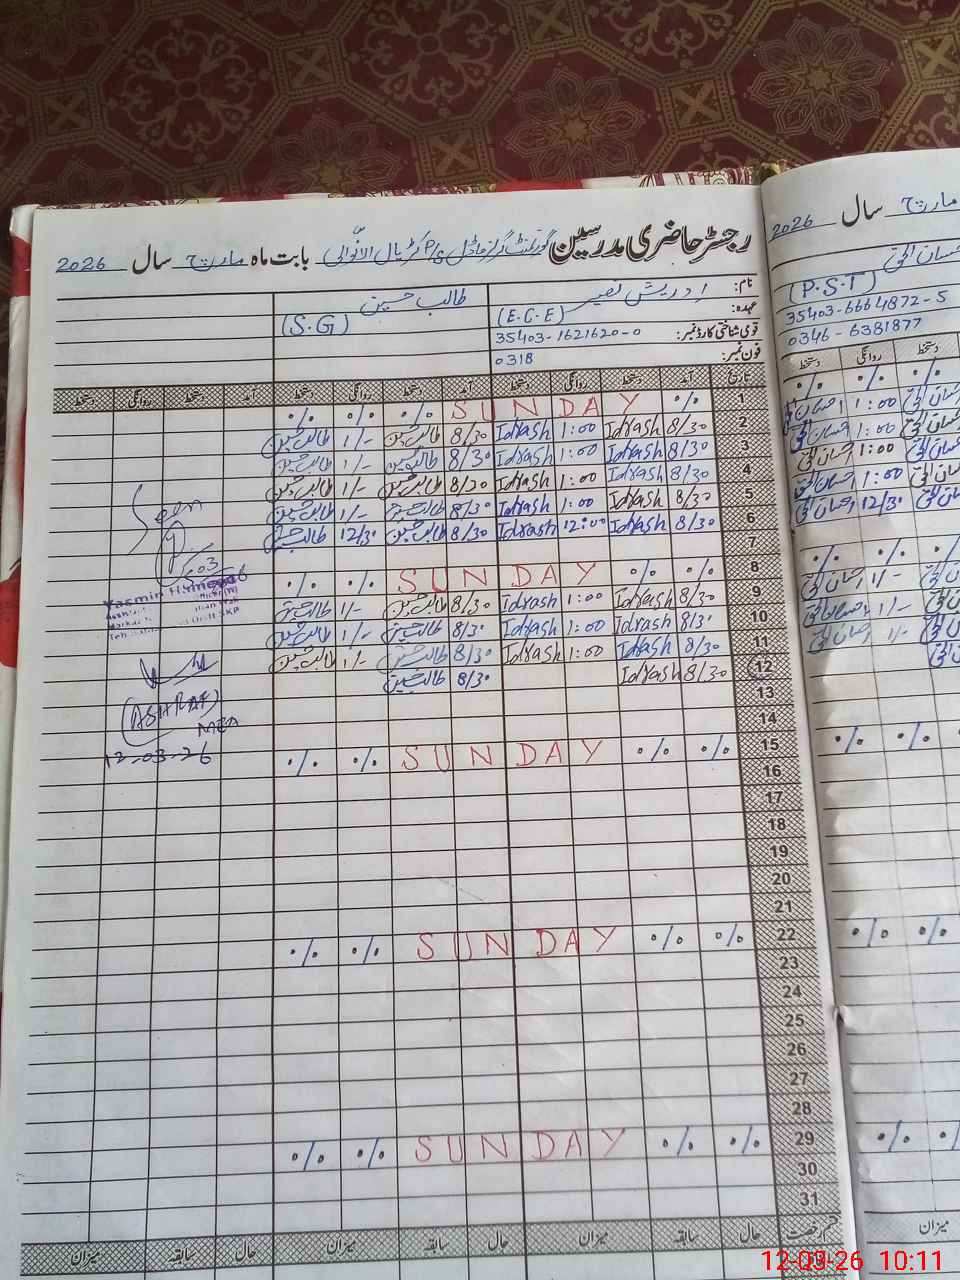 رجسٹر حاضری مدرسین گورنمنٹ گرلز ماڈل P/S بابت ماہ مارچ سال 2026
نام: ادریش نصیر
طالب حسین
عہدہ: (E.C.E)
(S.G)
قومی شناختی کارڈ نمبر: 35403-1621620-0
فون نمبر: 0318
تاریخ آمد دستخط روانگی دستخط آمد دستخط روانگی دستخط آمد دستخط روانگی دستخط
1 ./. SUNDAY ./. ./. ./.
2 8/30 Idrash 1:00 Idrash 8/30 طالب حسین 1/- طالب حسین
3 8/30 Idrash 1:00 Idrash 8/30 طالب حسین 1/- طالب حسین
4 8/30 Idrash 1:00 Idrash 8/30 طالب حسین 1/- طالب حسین
5 8/30 Idrash 1:00 Idrash 8/30 طالب حسین 1/- طالب حسین
6 8/30 Idrash 12:00 Idrash 8/30 طالب حسین 12/30 طالب حسین
7
8 ./. ./. SUNDAY ./. ./.
9 8/30 Idrash 1:00 Idrash 8/30 طالب حسین 1/- طالب حسین
10 8/30 Idrash 1:00 Idrash 8/30 طالب حسین 1/- طالب حسین
11 8/30 Idrash 1:00 Idrash 8/30 طالب حسین 1/- طالب حسین
12 8/30 Idrash 8/30 طالب حسین
13
14
15 ./. ./. SUNDAY ./. ./.
16
17
18
19
20
21
22 ./. ./. SUNDAY ./. ./.
23
24
25
26
27
28
29 ./. ./. SUNDAY ./. ./.
30
31
قسم رخصت حال سابقہ میزان حال سابقہ میزان حال سابقہ میزان
Seen
Yasmin
(ASHRAF)
MEA
12-03-26
مارچ سال 2026
احسان الحق
(P.S.T)
35403-6664872-5
0346-6381877
دستخط روانگی دستخط
./. ./. ./.
احسان الحق 1:00 احسان الحق
احسان الحق 1:00 احسان الحق
احسان الحق 1:00 احسان الحق
احسان الحق 1:00 احسان الحق
احسان الحق 12/30 احسان الحق
./. ./. ./.
احسان الحق 1/- احسان الحق
احسان الحق 1/- احسان الحق
احسان الحق 1/- احسان الحق
./. ./.
./. ./.
./. ./.
میزان
12-03-26 10:11